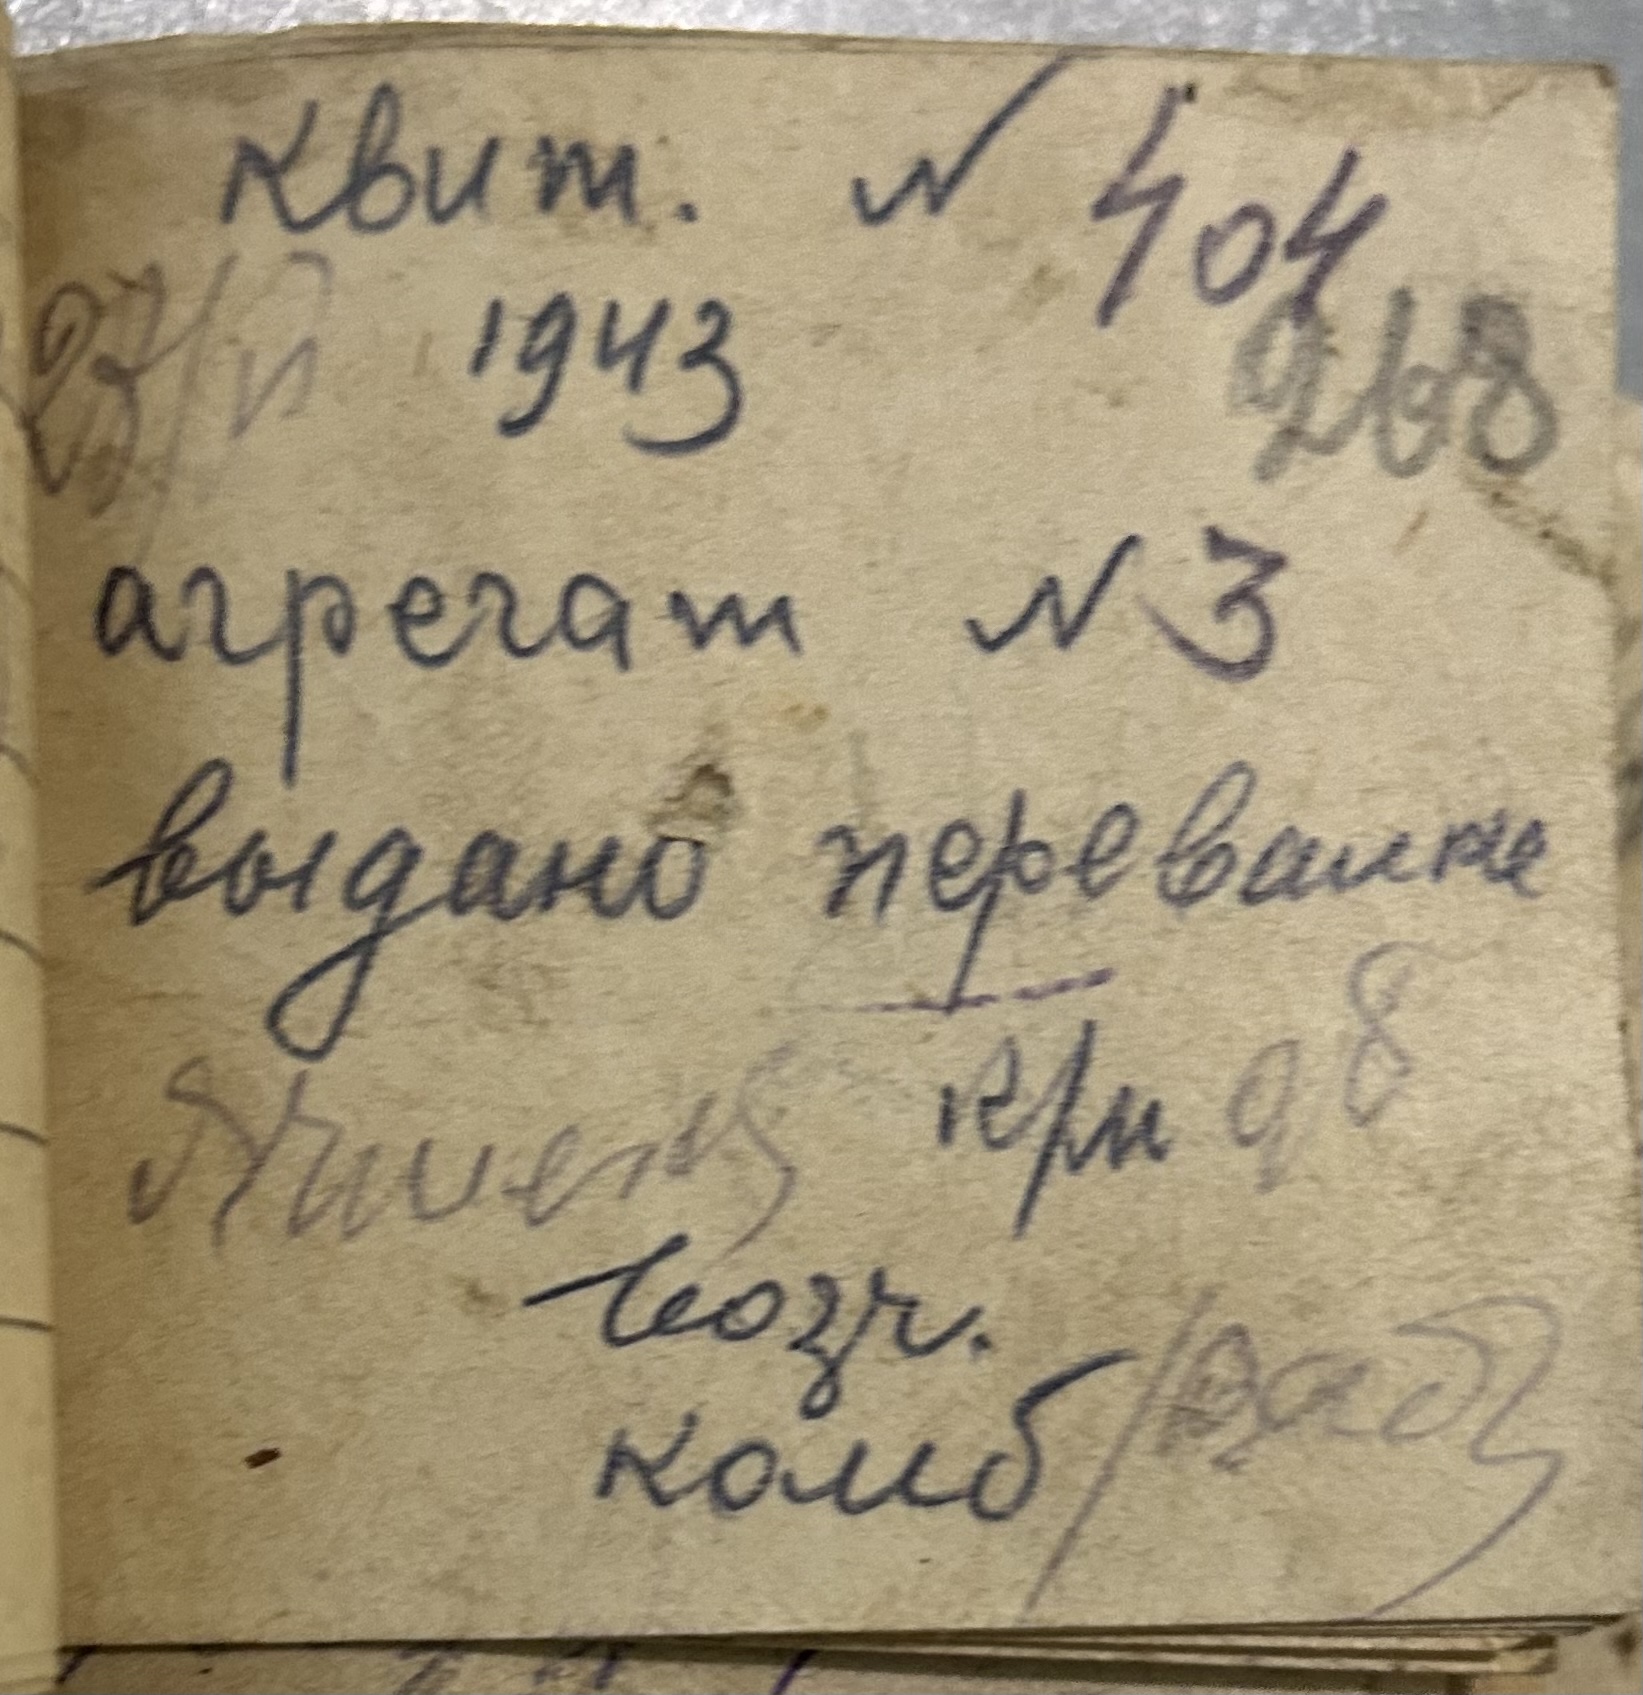 квит. N 404
1943 268
агрегат N 3
выдано перевалке
Ячмень крн 98
возч.
комб